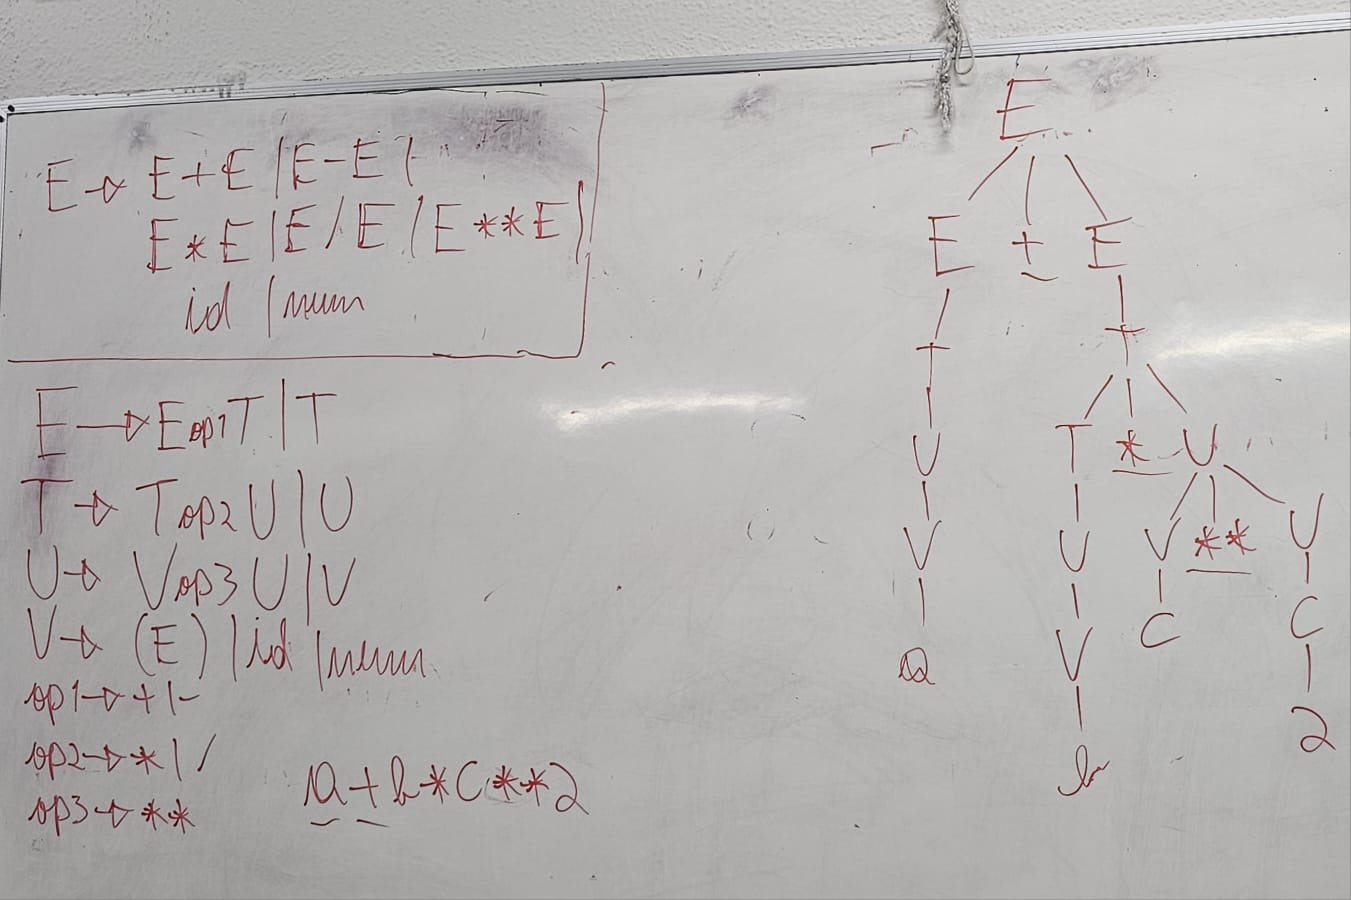 E → E + E | E - E |
E * E | E / E | E ** E |
id | num
E → E op1 T | T
T → T op2 U | U
U → V op3 U | V
V → (E) | id | num
op1 → + | -
op2 → * | /
op3 → **
a + b * C ** 2
E
E + E
T T
U T * U
V U V ** U
a V C C
b 2